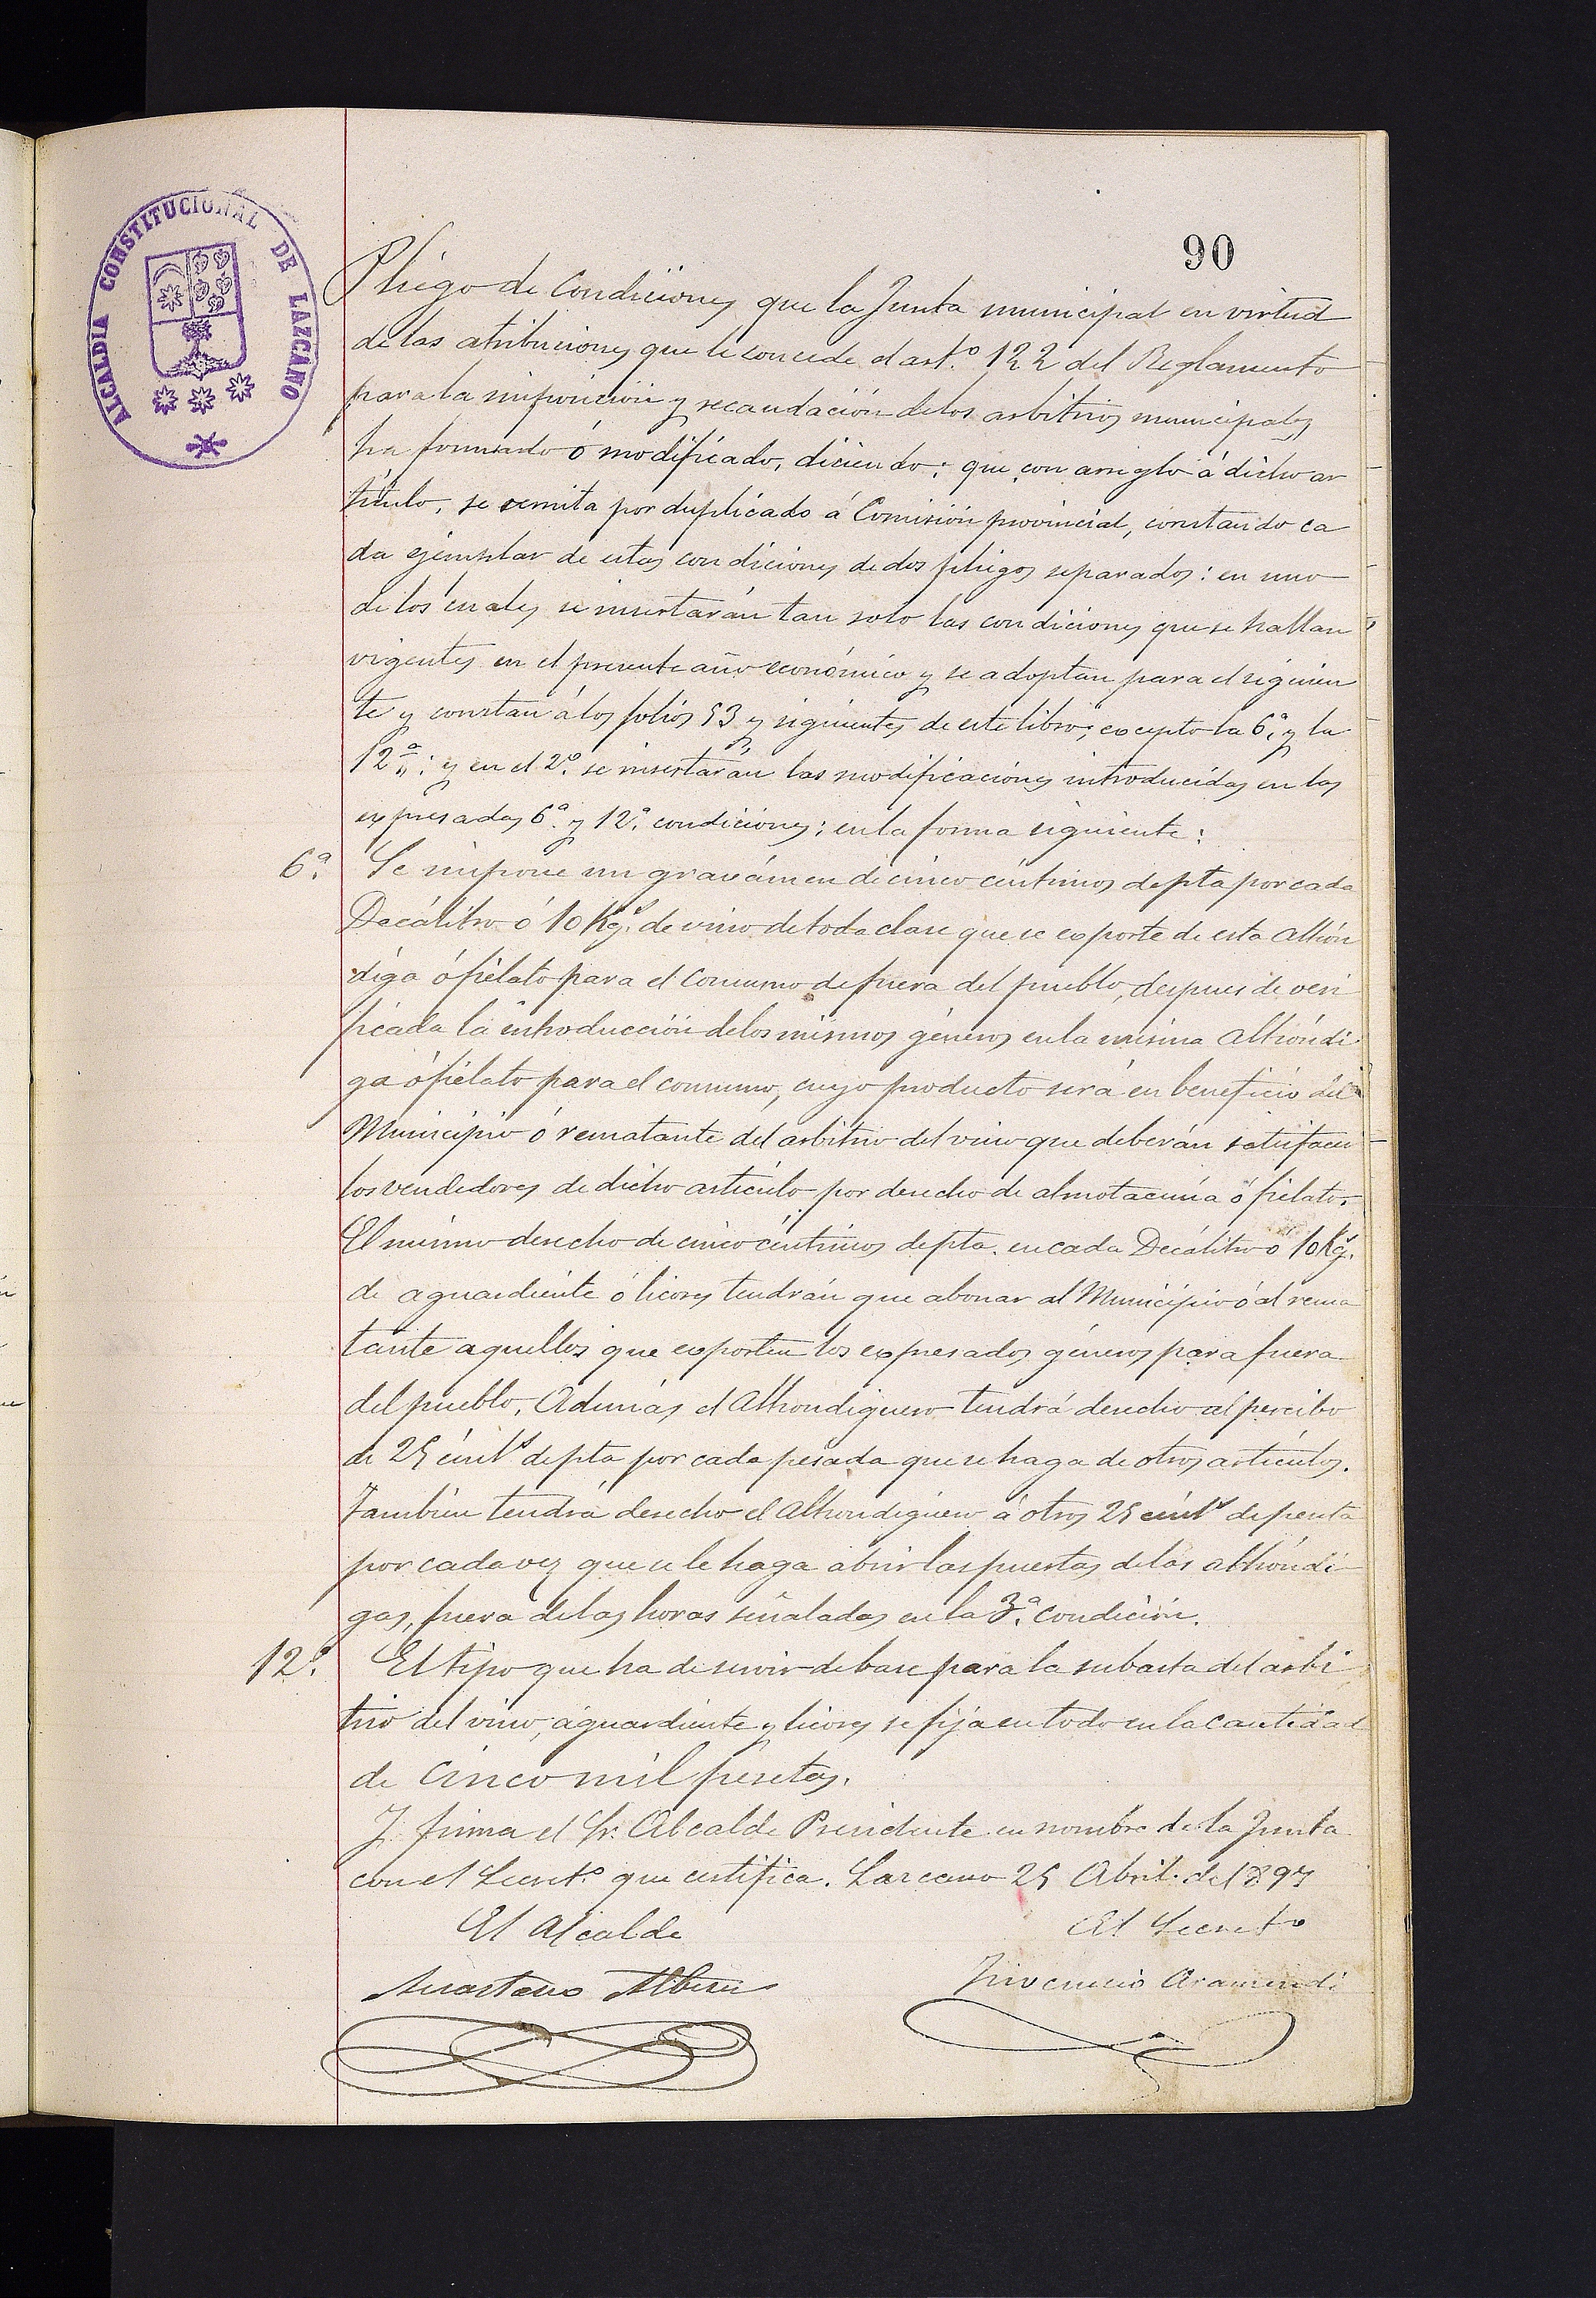 ALCALDIA CONSTITUCIONAL DE LAZCANO
90
Pliego de Condiciones que la Junta municipal en virtud
de las atribuciones que le concede el art.º 122 del Reglamento
para la imposición y recaudación de los arbitrios municipales
ha formado ó modificado, diciendo: que con arreglo á dicho ar
tículo, se remita por duplicado á Comisión provincial, constando ca
da ejemplar de estas condiciones de dos pliegos separados: en uno
de los cuales se insertarán tan solo las condiciones que se hallan
vigentes en el presente año económico y se adoptan para el siguien
te y constan á los folios 53 y siguientes de este libro; excepto la 6.ª y la
12.ª: y en el 2.º se insertarán las modificaciones introducidas en las
expresadas 6.ª y 12.ª condiciones: en la forma siguiente:
6.ª Se impone un gravámen de cinco céntimos de pta por cada
Decálitro ó 10 Kg.s de vino de toda clase que se exporte de esta Alhón
diga ó fielato para el consumo de fuera del pueblo, despues de veri
ficada la introducción de los mismos géneros en la misma Alhóndi
ga ó fielato para el consumo, cuyo producto será en beneficio del
Municipio ó rematante del arbitrio del vino que deberán satisfacer
los vendedores de dicho artículo por derecho de almotacenía ó fielato.
El mismo derecho de cinco céntimos de pta. en cada Decálitro ó 10 Kg.s
de aguardiente ó licores tendrán que abonar al Municipio ó al rema
tante aquellos que exporten los expresados géneros para fuera
del pueblo. Además el Alhondiguero tendrá derecho al percibo
de 25 cént.s de pta por cada pesada que se haga de otros artículos.
Tambien tendrá derecho el Alhondiguero á otros 25 cént.s de peseta
por cada vez que se le haga abrir las puertas de las alhóndi
gas, fuera de las horas señaladas en la 3.ª condición.
12.ª El tipo que ha de servir de base para la subasta del arbi
trio del vino, aguardiente y licores se fija en todo en la cantidad
de cinco mil pesetas.
Y firma el Sr. Alcalde Presidente en nombre de la Junta
con el Secret.º que certifica. Lazcano 25 Abril de 1897
El Alcalde
El Secret.º
Anastasio Alberdi
Juvencio Aramendi